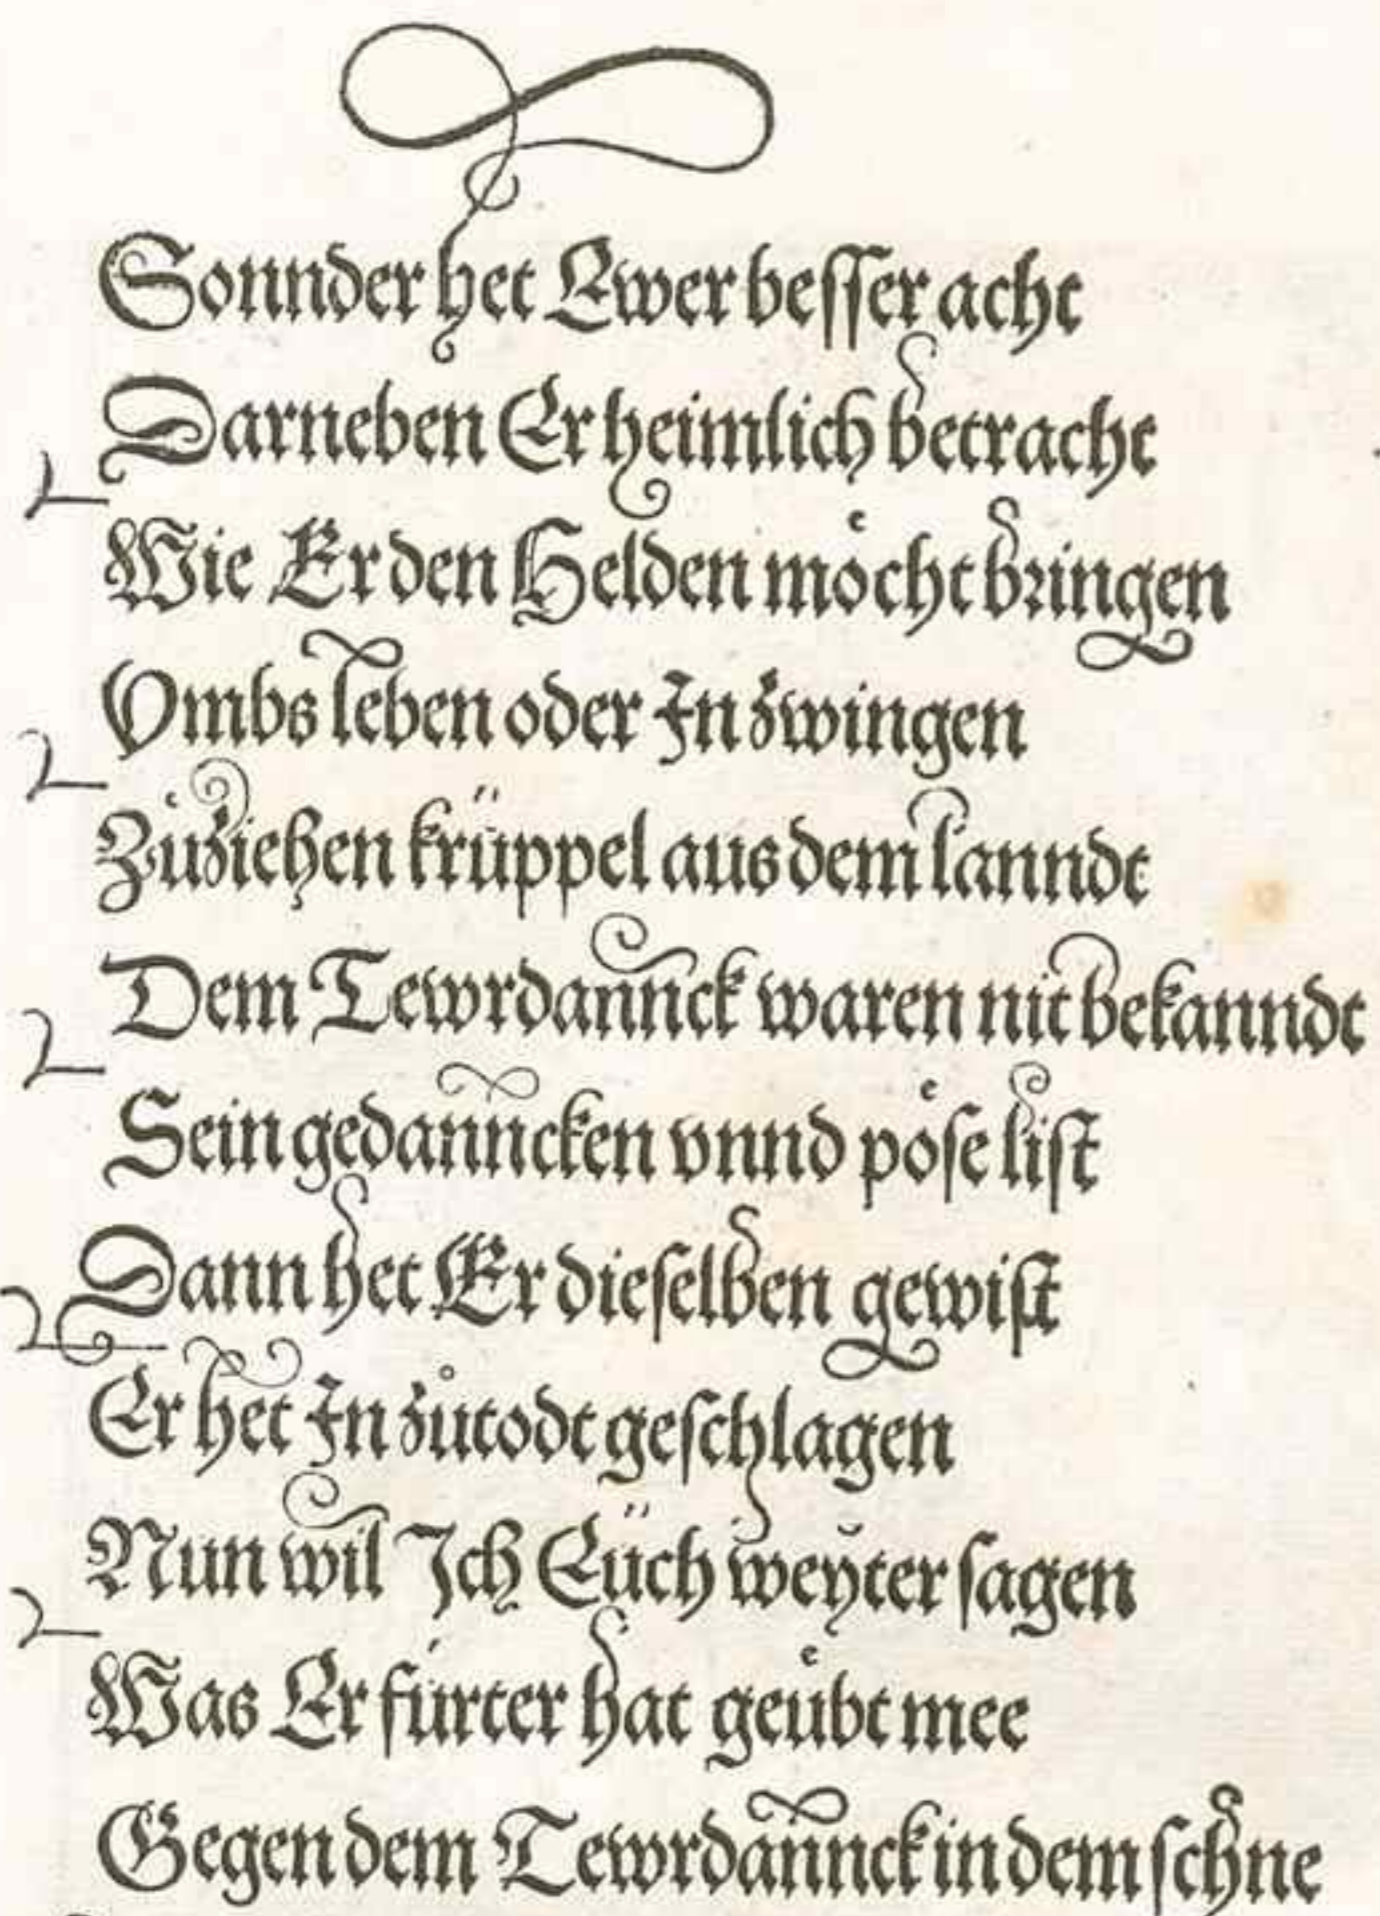 Sonnder het Ewer besser acht
Darneben Er heimlich betracht
Wie Er den Helden möcht bringen
Vmbs leben oder In zwingen
Zůziehen krüppel aus dem lanndt
Dem Tewrdannck waren nit bekanndt
Sein gedanncken vnnd pöse list
Dann het Er dieselben gewist
Er het In zůtodt geschlagen
Nun wil Ich Eüch weyter sagen
Was Er fürter hat geübt mee
Gegen dem Tewrdannck in dem schne